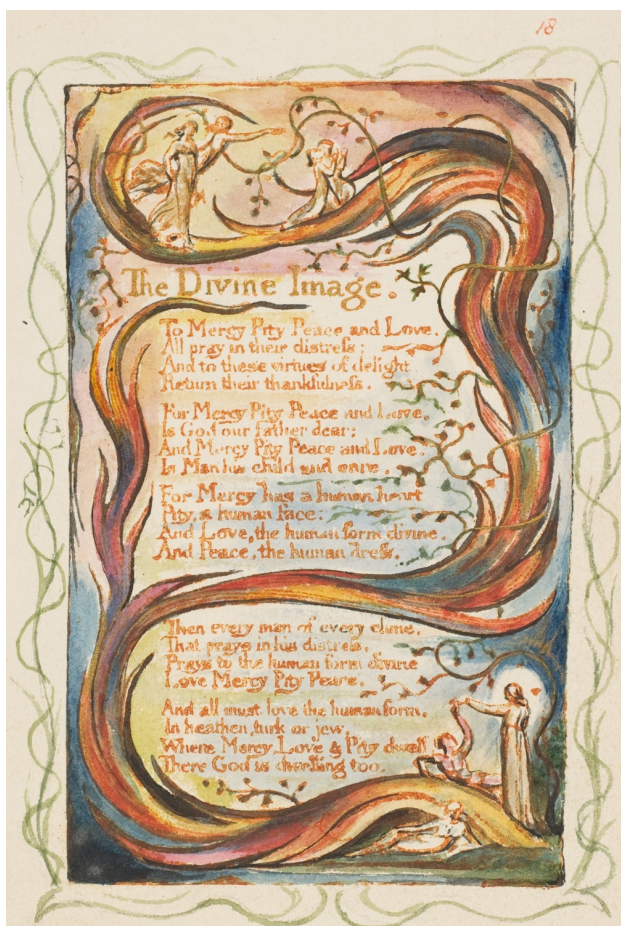 18
The Divine Image.
To Mercy Pity Peace and Love.
All pray in their distress:
And to these virtues of delight
Return their thankfulness.
For Mercy Pity Peace and Love,
Is God our father dear:
And Mercy Pity Peace and Love.
Is Man his child and care.
For Mercy has a human heart
Pity, a human face:
And Love, the human form divine.
And Peace, the human dress.
Then every man of every clime,
That prays in his distress,
Prays to the human form divine
Love Mercy Pity Peace.
And all must love the human form,
In heathen, turk or jew.
Where Mercy, Love & Pity dwell
There God is dwelling too.